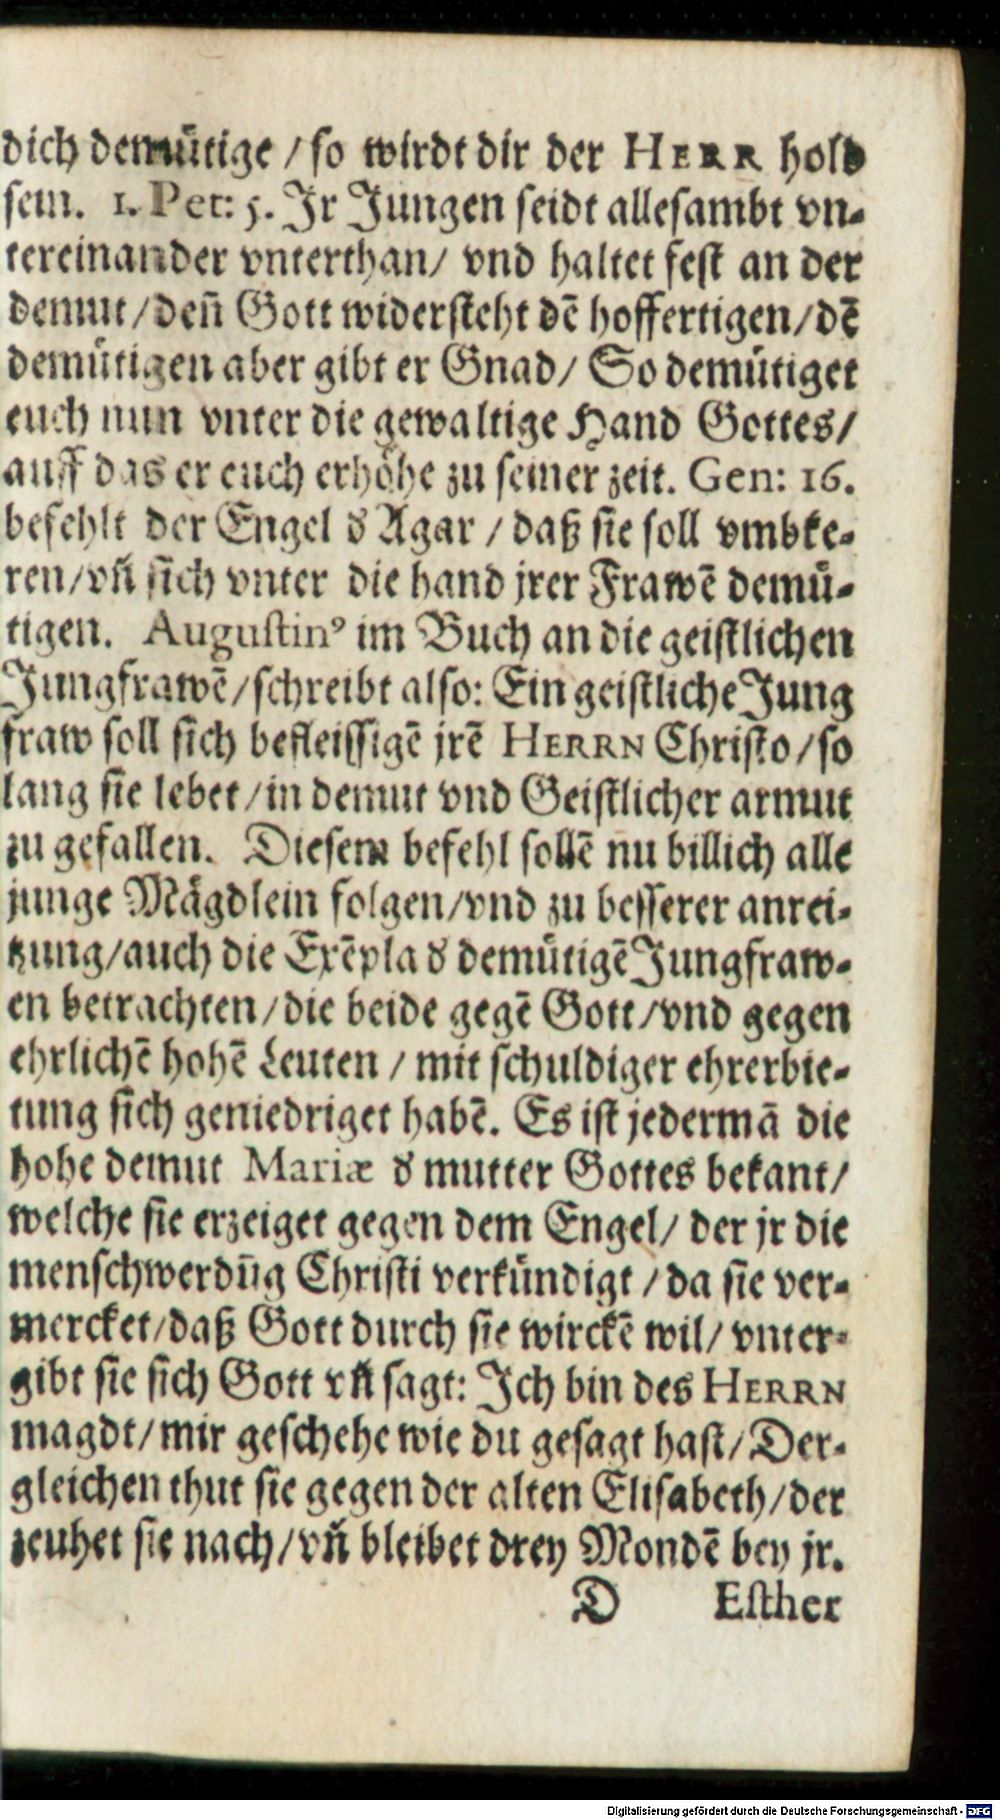 dich demütige / so wirdt dir der HERR hold
sein. 1. Pet: 5. Jr Jungen seidt allesambt vn-
tereinander vnterthan/ vnd haltet fest an der
demut/deñ Gott widersteht dē hoffertigen/dē
demütigen aber gibt er Gnad/ So demütiget
euch nun vnter die gewaltige Hand Gottes/
auff das er euch erhöhe zu seiner zeit. Gen: 16.
befehlt der Engel d̕ Agar / daß sie soll vmbke-
ren/vñ sich vnter die hand jrer Frawē demü-
tigen. Augustinꝰ im Buch an die geistlichen
Jungfrawē/schreibt also: Ein geistliche Jung
fraw soll sich befleissigē jrē HERRN Christo/so
lang sie lebet/in demut vnd Geistlicher armut
zu gefallen. Diesem befehl sollē nu billich alle
junge Mägdlein folgen/vnd zu besserer anrei-
tzung/auch die Exēpla d̕ demütigē Jungfraw-
en betrachten/die beide gegē Gott/vnd gegen
ehrlichē hohē Leuten / mit schuldiger ehrerbie-
tung sich geniedriget habē. Es ist jedermā die
hohe demut Mariæ d̕ mutter Gottes bekant/
welche sie erzeiget gegen dem Engel/ der jr die
menschwerdūg Christi verkündigt / da sie ver-
mercket/daß Gott durch sie wirckē wil/ vnter-
gibt sie sich Gott vñ sagt: Ich bin des HERRN
magdt/mir geschehe wie du gesagt hast/Der-
gleichen thut sie gegen der alten Elisabeth/der
zeuhet sie nach/vñ bleibet drey Mondē bey jr.
D Esther
Digitalisierung gefördert durch die Deutsche Forschungsgemeinschaft - DFG